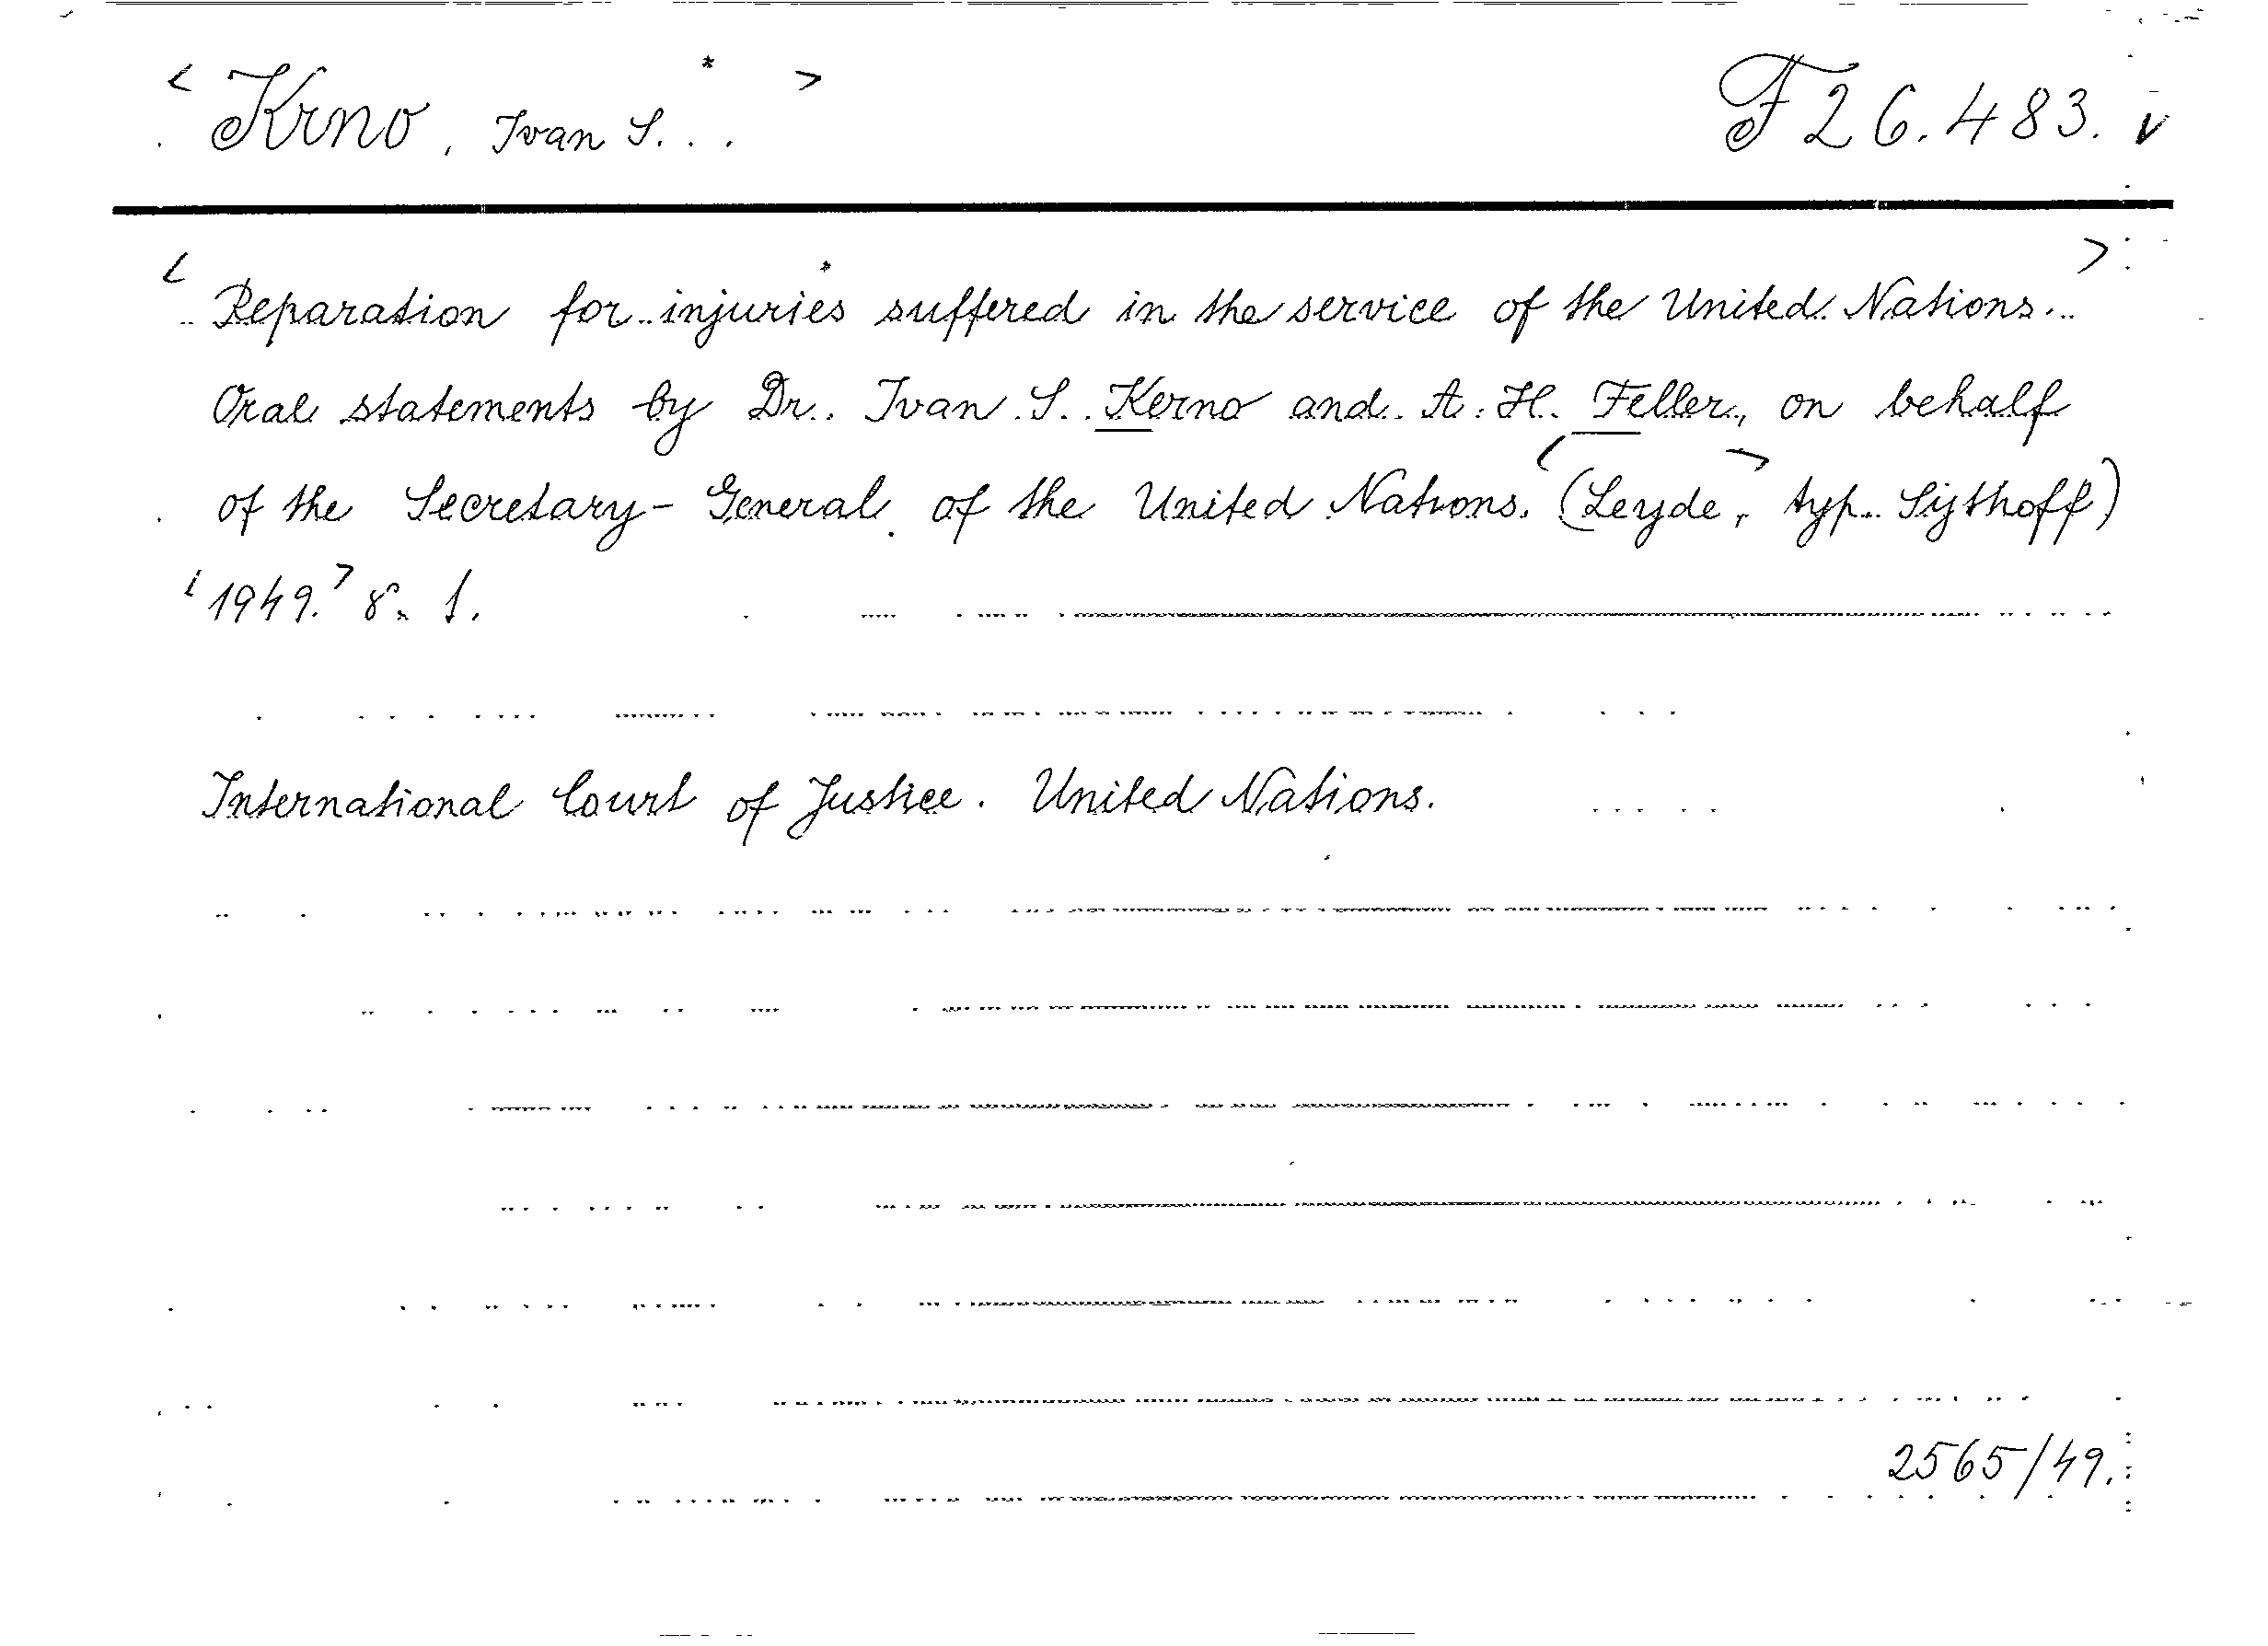 < Krno, Ivan S. . . * > F 26.483. v
< Reparation for injuries * suffered in the service of the United Nations. >
Oral statements by Dr. Ivan S. Kerno and A. H. Feller, on behalf
of the Secretary-General of the United Nations. <(Leyde,> typ. Sijthoff)
<1949.> 8°. 1.
International Court of Justice. United Nations.
2565/49.